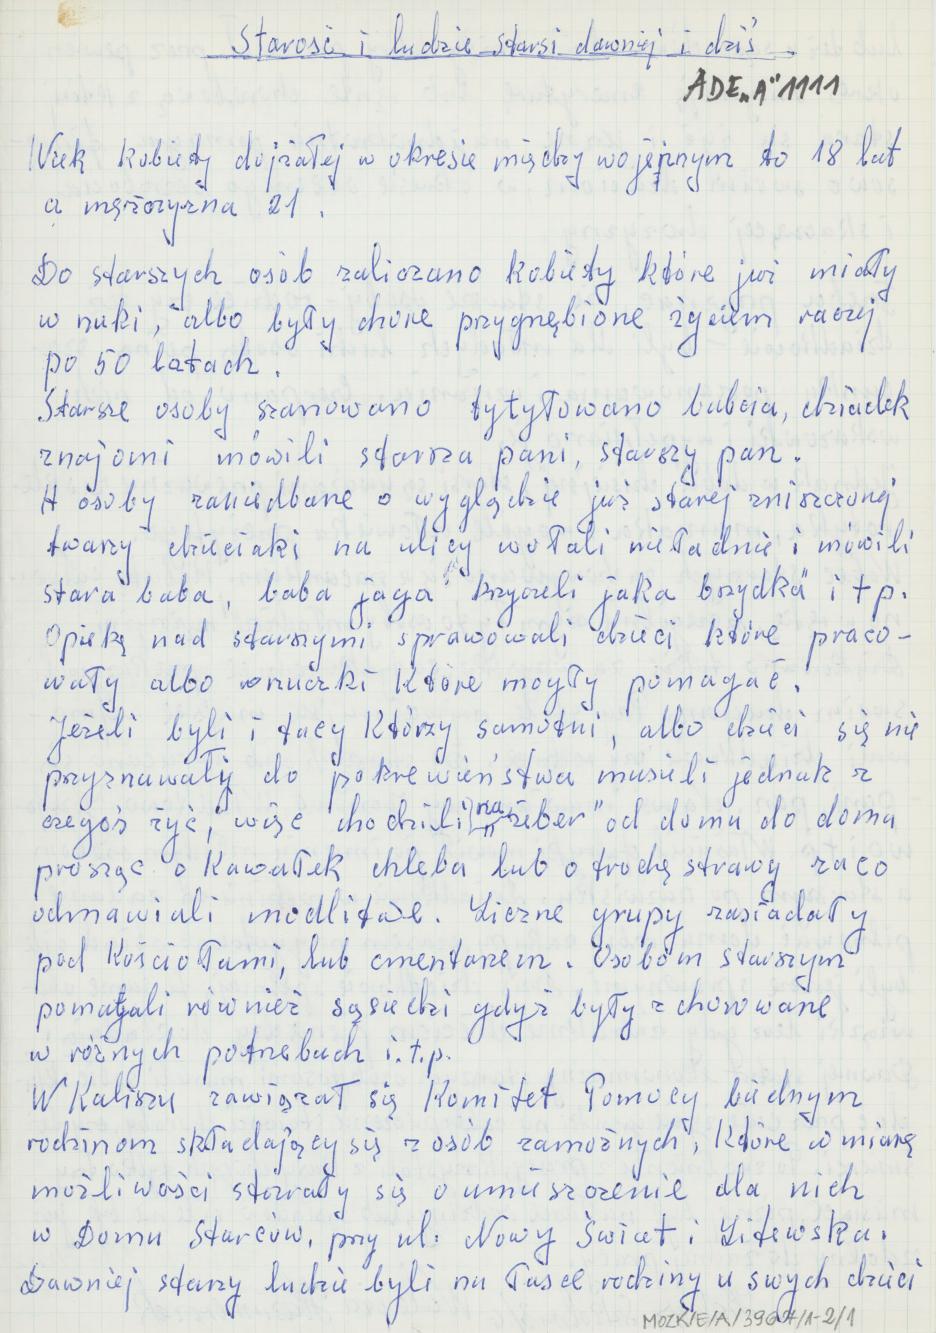 Starość i ludzie starsi dawniej i dziś
ADE„A" 1111
Wiek kobiety dojrzałej w okresie między wojennym to 18 lat
a mężczyzna 21.
Do starszych osób zaliczano kobiety które już miały
wnuki, albo były chore przygnębione życiem raczej
po 50 latach.
Starsze osoby szanowano tytyłowano babcia, dziadek
znajomi mówili starsza pani, starszy pan.
A osoby zaniedbane o wyglądzie już starej zniszczonej
twarzy dzieciaki na ulicy wołali nieładnie i mówili
stara baba, baba jaga krzyczeli jaka brzydka" i t p.
Opiekę nad starszymi sprawowali dzieci które praco-
wały albo wnuczki które mogły pomagać.
Jeżeli byli i tacy którzy samotni, albo dzieci się nie
przyznawały do pokrewieństwa musieli jednak z
czegoś żyć, więc chodzili na „żeber" od domu do domu
prosząc o kawałek chleba lub o trochę strawy za co
odmawiali modlitwe. Liczne grupy zasiadały
pod Kościołami, lub cmentarzem. Osobom starszym
pomagali również sąsiedzi gdyż były schorowane
w różnych potrzebach i.t.p.
W Kaliszu zawiązał się Komitet Pomocy biednym
rodzinom składający się z osób zamożnych, które w miarę
możliwości starały się o umieszczenie dla nich
w Domu Starców, przy ul. Nowy Świat i Litewska.
Dawniej starzy ludzie byli na łasce rodziny u swych dzieci
MOZK/E/A/3967/1-2/1